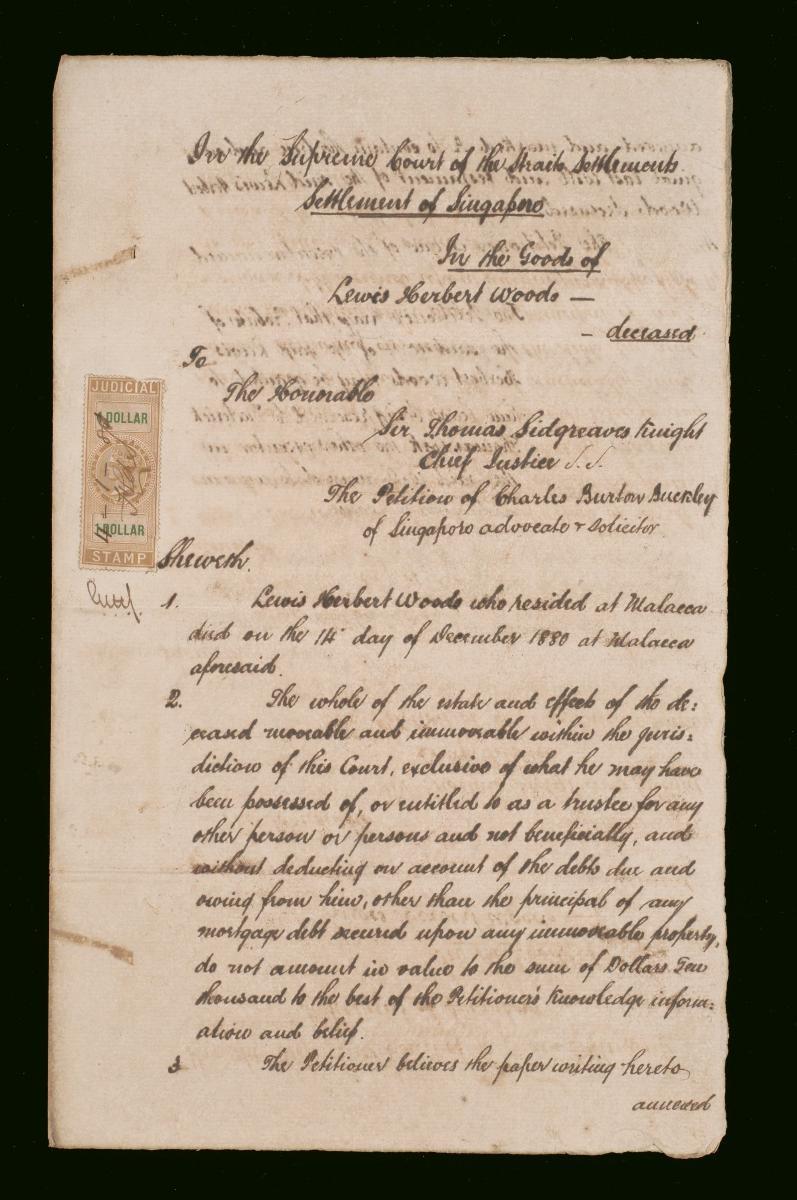 In the Supreme Court of the Straits Settlements
Settlement of Singapore
In the Goods of
Lewis Herbert Woods —
— deceased
To
The Honorable
Sir Thomas Sidgreaves Knight
Chief Justice S.S.
The Petition of Charles Burton Buckley
of Singapore advocate & solicitor
JUDICIAL
1 DOLLAR
1 DOLLAR
STAMP
Sheweth.
1. Lewis Herbert Woods who resided at Malacca
died on the 14 day of December 1880 at Malacca
aforesaid.
2. The whole of the estate and effects of the de=
ceased moveable and immoveable within the juris=
diction of this Court, exclusive of what he may have
been possessed of, or entitled to as a trustee for any
other person or persons and not beneficially, and
without deducting on account of the debts due and
owing from him, other than the principal of any
mortgage debt secured upon any immoveable property,
do not amount in value to the sum of Dollars Ten
thousand to the best of the Petitioner's knowledge inform=
ation and belief.
3 The Petitioner believes the paper writing hereto
annexed